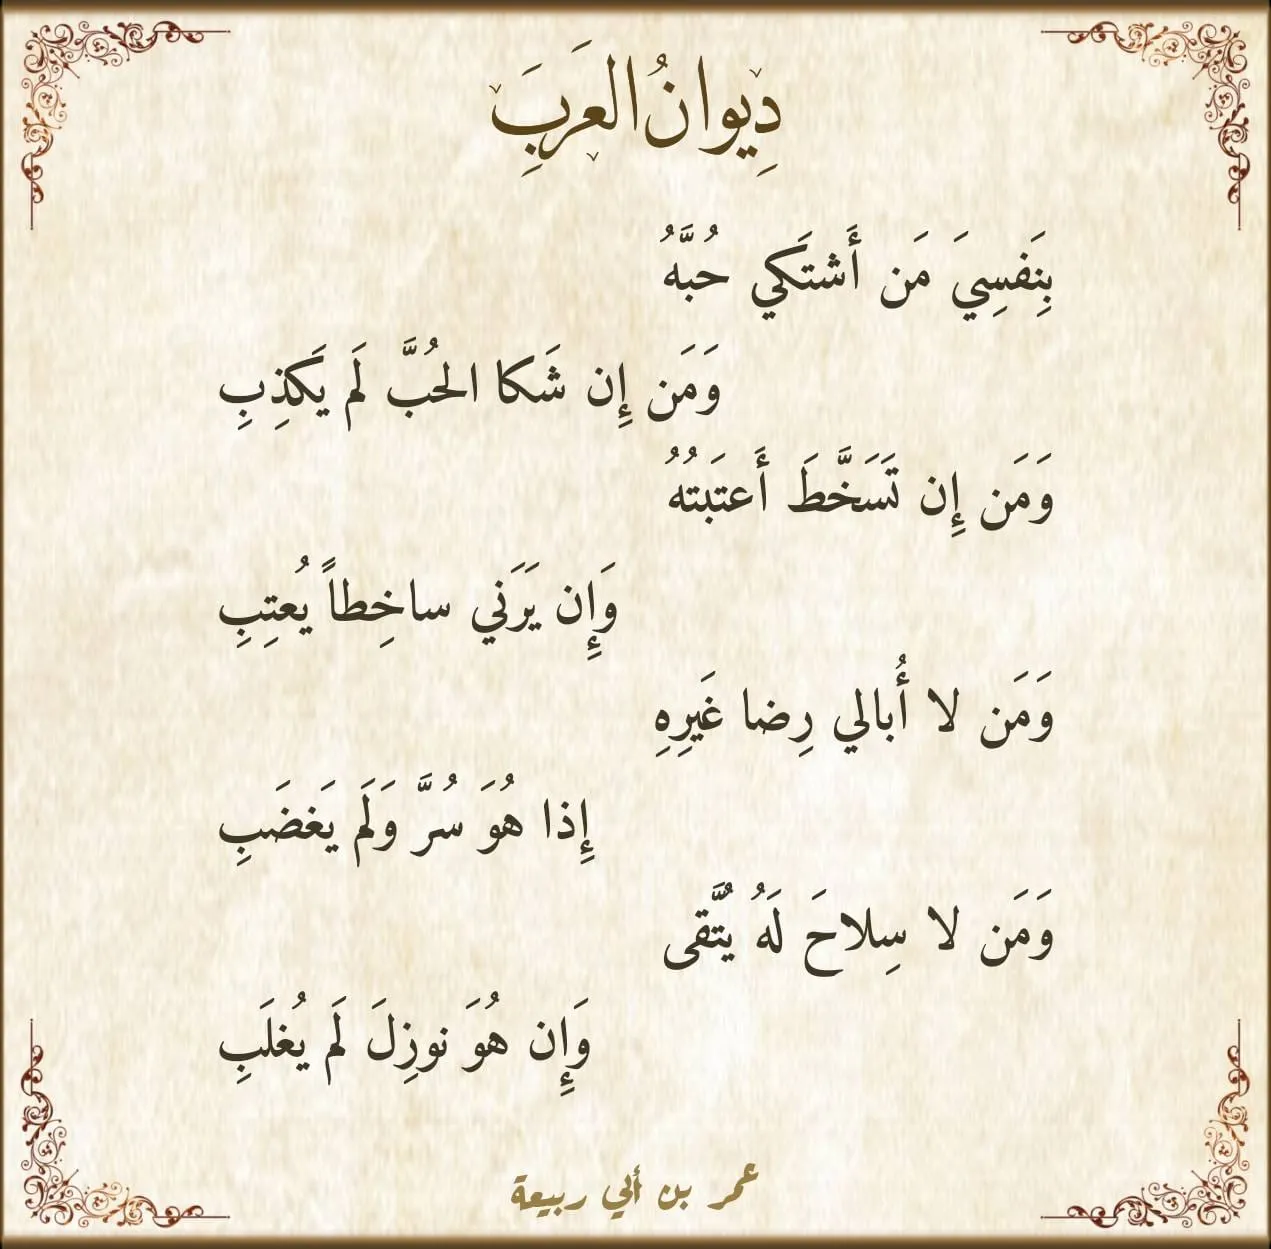 دِيوانُ العَرَبِ
بِنَفسِيَ مَن أَشتَكي حُبَّهُ
وَمَن إِن شَكا الحُبَّ لَم يَكذِبِ
وَمَن إِن تَسَخَّطَ أَعتَبتُهُ
وَإِن يَرَني ساخِطاً يُعتِبِ
وَمَن لا أُبالي رِضا غَيرِهِ
إِذا هُوَ سُرَّ وَلَم يَغضَبِ
وَمَن لا سِلاحَ لَهُ يُتَّقى
وَإِن هُوَ نوزِلَ لَم يُغلَبِ
عمر بن أبي ربيعة